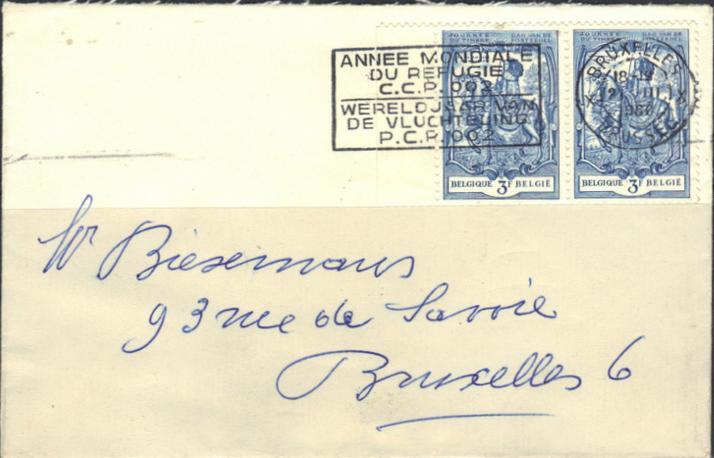 JOURNÉE DU TIMBRE DAG VAN DE POSTZEGEL
JOURNÉE DU TIMBRE DAG VAN DE POSTZEGEL
ANNEE MONDIALE
DU REFUGIE
C.C.P. 002
WERELDJAAR VAN
DE VLUCHTELING
P.C.R. 002
BRUXELLES
18-19
III
BRUSSEL
BELGIQUE 3F BELGIE
BELGIQUE 3F BELGIE
Mr Biesemans
93 rue de Savoie
Bruxelles 6